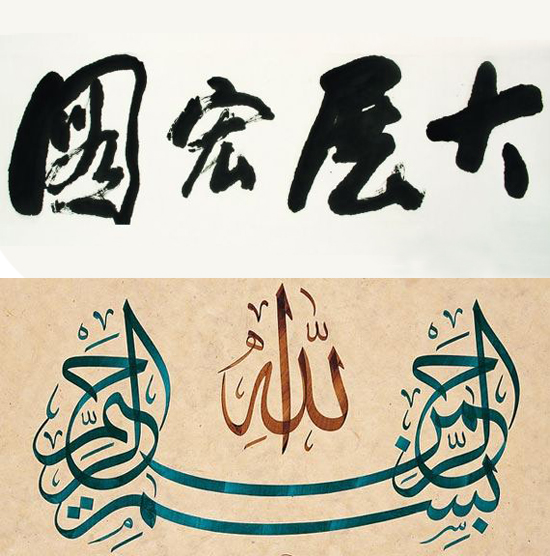 大展宏圖
بِسْمِ اللهِ الرَّحْمٰنِ الرَّحِيمِ